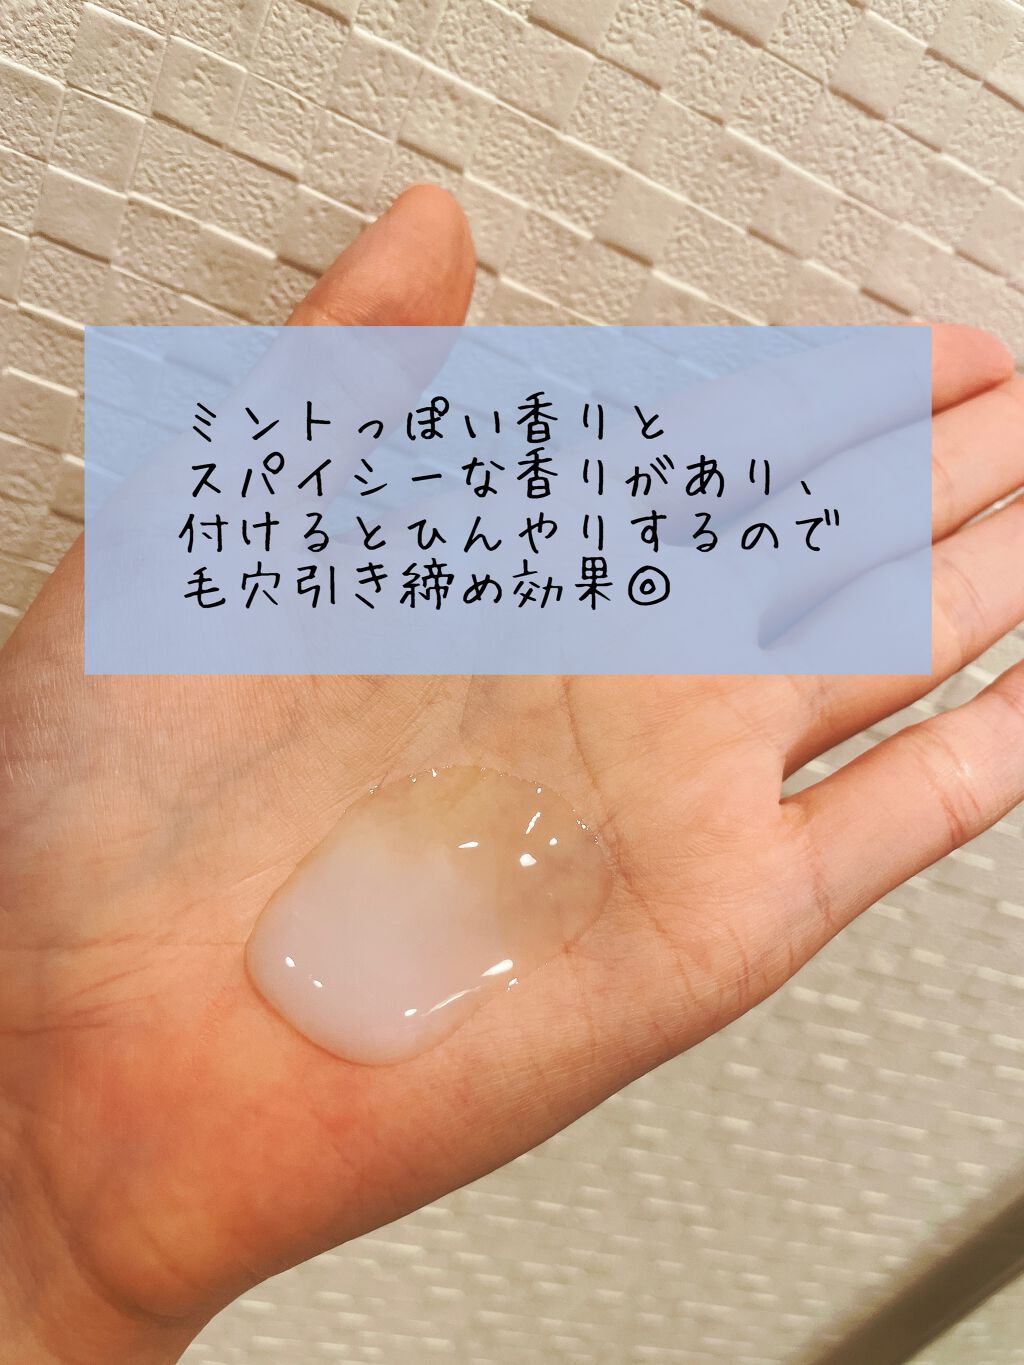 ミントっぽい香りと
スパイシーな香りがあり、
付けるとひんやりするので
毛穴引き締め効果◎